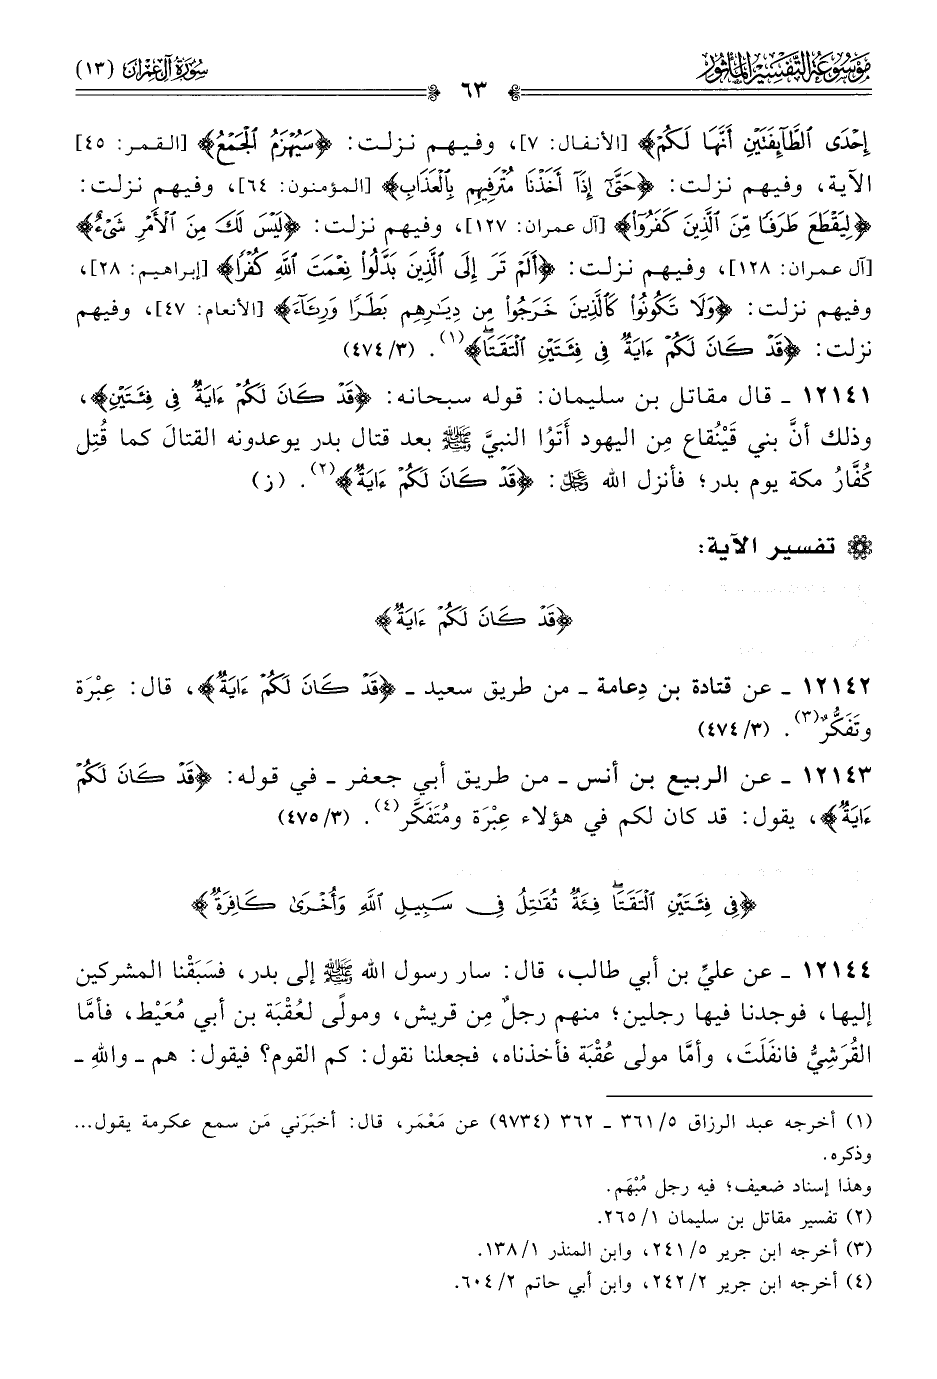 مَوْسُوعَةُ التَّفْسِيرِ المَأْثُورِ
سُورَةُ آلِ عِمْرَانَ (١٣)
٦٣
إِحْدَى ٱلطَّآئِفَتَيْنِ أَنَّهَا لَكُمْ﴾ [الأنفال: ٧]، وفيهم نزلت: ﴿سَيُهْزَمُ ٱلْجَمْعُ﴾ [القمر: ٤٥]
الآية، وفيهم نزلت: ﴿حَتَّىٰٓ إِذَآ أَخَذْنَا مُتْرَفِيهِم بِٱلْعَذَابِ﴾ [المؤمنون: ٦٤]، وفيهم نزلت:
﴿لِيَقْطَعَ طَرَفًا مِّنَ ٱلَّذِينَ كَفَرُوٓاْ﴾ [آل عمران: ١٢٧]، وفيهم نزلت: ﴿لَيْسَ لَكَ مِنَ ٱلْأَمْرِ شَىْءٌ﴾
[آل عمران: ١٢٨]، وفيهم نزلت: ﴿أَلَمْ تَرَ إِلَى ٱلَّذِينَ بَدَّلُواْ نِعْمَتَ ٱللَّهِ كُفْرًا﴾ [إبراهيم: ٢٨]،
وفيهم نزلت: ﴿وَلَا تَكُونُواْ كَٱلَّذِينَ خَرَجُواْ مِن دِيَٰرِهِم بَطَرًا وَرِئَآءَ﴾ [الأنعام: ٤٧]، وفيهم
نزلت: ﴿قَدْ كَانَ لَكُمْ ءَايَةٌ فِى فِئَتَيْنِ ٱلْتَقَتَا﴾(١). (٣/ ٤٧٤)
١٢١٤١ ـ قال مقاتل بن سليمان: قوله سبحانه: ﴿قَدْ كَانَ لَكُمْ ءَايَةٌ فِى فِئَتَيْنِ﴾،
وذلك أنَّ بني قَيْنُقاع مِن اليهود أَتَوُا النبيَّ ﷺ بعد قتال بدر يوعدونه القتالَ كما قُتِل
كُفَّارُ مكة يوم بدر؛ فأنزل الله ﷿: ﴿قَدْ كَانَ لَكُمْ ءَايَةٌ﴾(٢). (ز)
تفسير الآية:
﴿قَدْ كَانَ لَكُمْ ءَايَةٌ﴾
١٢١٤٢ ـ عن قتادة بن دِعامة ـ من طريق سعيد ـ ﴿قَدْ كَانَ لَكُمْ ءَايَةٌ﴾، قال: عِبْرَة
وتَفَكُّرٌ(٣). (٣/ ٤٧٤)
١٢١٤٣ ـ عن الربيع بن أنس ـ من طريق أبي جعفر ـ في قوله: ﴿قَدْ كَانَ لَكُمْ
ءَايَةٌ﴾، يقول: قد كان لكم في هؤلاء عِبْرَة ومُتَفَكَّر(٤). (٣/ ٤٧٥)
﴿فِى فِئَتَيْنِ ٱلْتَقَتَا فِئَةٌ تُقَٰتِلُ فِى سَبِيلِ ٱللَّهِ وَأُخْرَىٰ كَافِرَةٌ﴾
١٢١٤٤ ـ عن عليِّ بن أبي طالب، قال: سار رسول الله ﷺ إلى بدر، فسَبَقْنا المشركين
إليها، فوجدنا فيها رجلين؛ منهم رجلٌ مِن قريش، ومولًى لعُقْبَة بن أبي مُعَيْط، فأمَّا
القُرَشِيُّ فانفَلَتَ، وأمَّا مولى عُقْبَة فأخذناه، فجعلنا نقول: كم القوم؟ فيقول: هم ـ واللهِ ـ
(١) أخرجه عبد الرزاق ٥/ ٣٦١ ـ ٣٦٢ (٩٧٣٤) عن مَعْمَر، قال: أخبَرَني مَن سمع عكرمة يقول...
وذكره.
وهذا إسناد ضعيف؛ فيه رجل مُبْهَم.
(٢) تفسير مقاتل بن سليمان ١/ ٢٦٥.
(٣) أخرجه ابن جرير ٥/ ٢٤١، وابن المنذر ١/ ١٣٨.
(٤) أخرجه ابن جرير ٢/ ٢٤٢، وابن أبي حاتم ٢/ ٦٠٤.